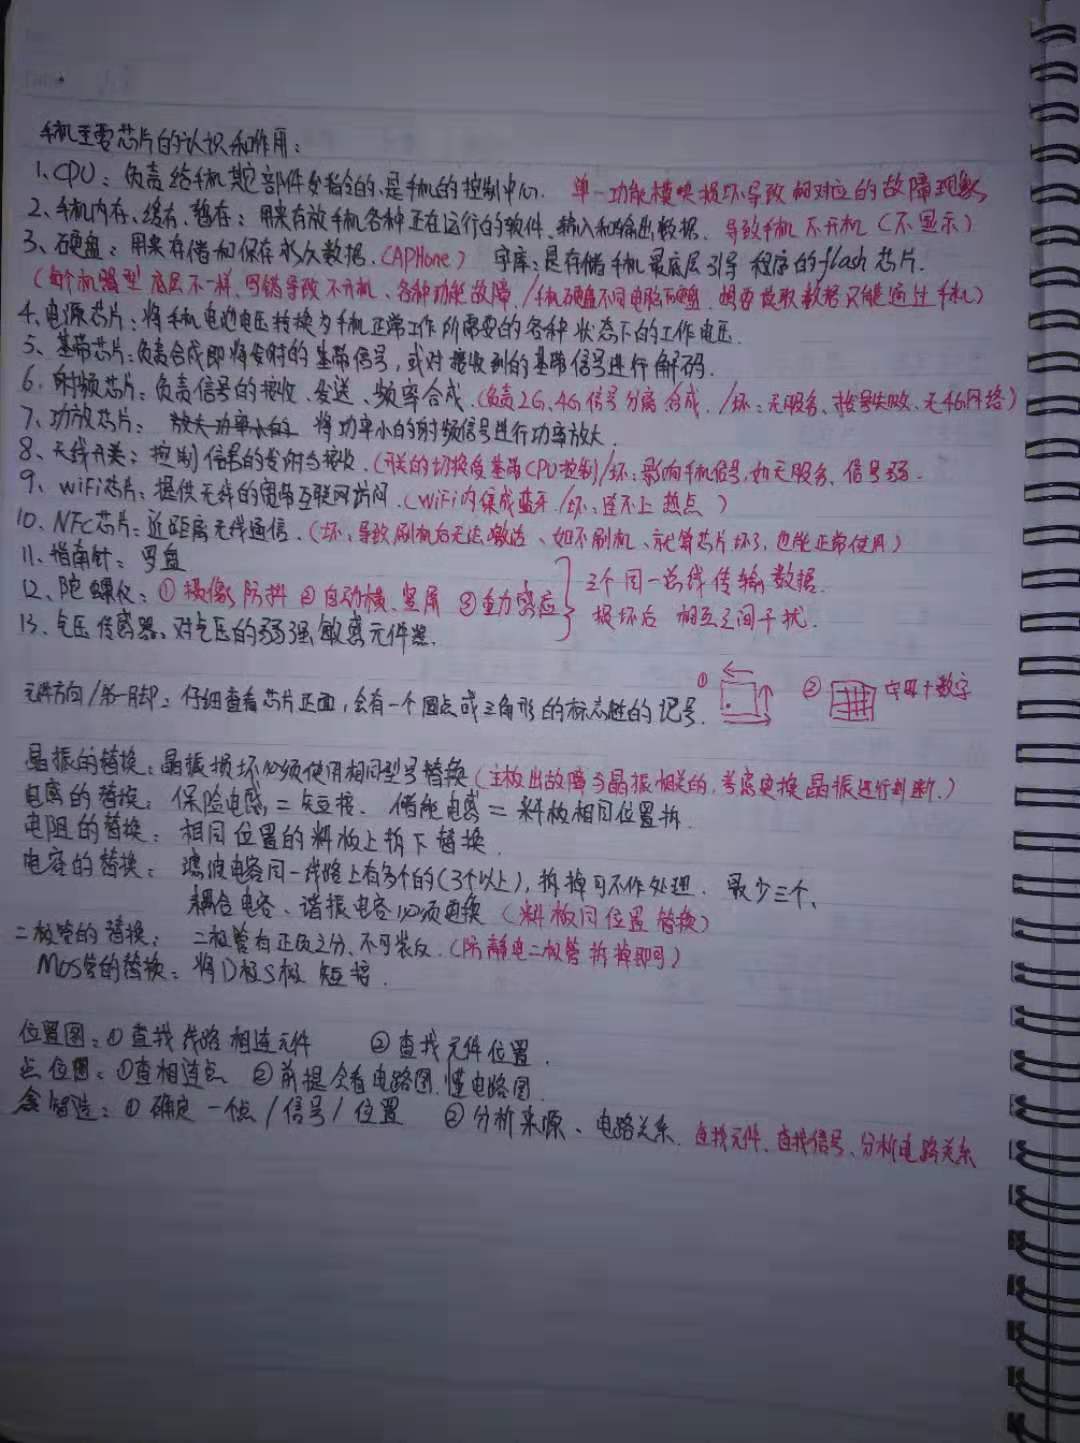 手机主要芯片的认识和作用：
1、CPU：负责给手机其它部件发指令的，是手机的控制中心. 单一功能模块损坏导致相对应的故障现象
2、手机内存、缓存、暂存：用来存放手机各种正在运行的软件、输入和输出数据. 导致手机不开机（不显示）
3、硬盘：用来存储和保存永久数据.（APHone） 字库：是存储手机最底层引导程序的flash芯片.
（每个机器型底层不一样、写错导致不开机、各种功能故障./手机硬盘不同电脑硬盘.想要提取数据只能通过手机）
4、电源芯片：将手机电池电压转换为手机正常工作所需要的各种状态下的工作电压.
5、基带芯片：负责合成即将发射的基带信号，或对接收到的基带信号进行解码.
6、射频芯片：负责信号的接收、发送、频率合成.（负责2G、4G信号分离合成./坏：无服务、拨号失败、无4G网络）
7、功放芯片： 放大功率小的 将功率小的射频信号进行功率放大.
8、天线开关：控制信号的发射与接收.（开关的切换受基带CPU控制/坏：影响手机信号，如无服务、信号弱.
9、WiFi芯片：提供无线的宽带互联网访问.（WiFi内集成蓝牙./坏：连不上热点）
10、NFC芯片：近距离无线通信.（坏：导致刷机后无法激活、如不刷机、就算芯片坏了，也能正常使用）
11、指南针：罗盘
12、陀螺仪：①摄像防抖 ②自动横、竖屏 ③重力感应 三个同一总线传输数据.
13、气压传感器、对气压的弱强敏感元件器. 损坏后 相互之间干扰.
元件方向/第一脚：仔细查看芯片正面，会有一个圆点或三角形的标志性的记号. ① ② 字母+数字
晶振的替换：晶振损坏必须使用相同型号替换（主板出故障与晶振相关的，考虑更换晶振进行判断.）
电感的替换：保险电感=短接、储能电感=料板相同位置拆.
电阻的替换：相同位置的料板上拆下替换.
电容的替换：滤波电容同一线路上有多个的（3个以上），拆掉可不作处理. 最少三个、
耦合电容、谐振电容必须更换（料板同位置替换）
二极管的替换：二极管有正负之分、不可装反.（防静电二极管拆掉即可）
MOS管的替换：将D极S极短接.
位置图：①查找线路相连元件 ②查找元件位置.
点位图：①查相连点 ②前提会看电路图.懂电路图.
鑫智造：①确定一个点/信号/位置 ②分析来源、电路关系. 查找元件、查找信号、分析电路关系